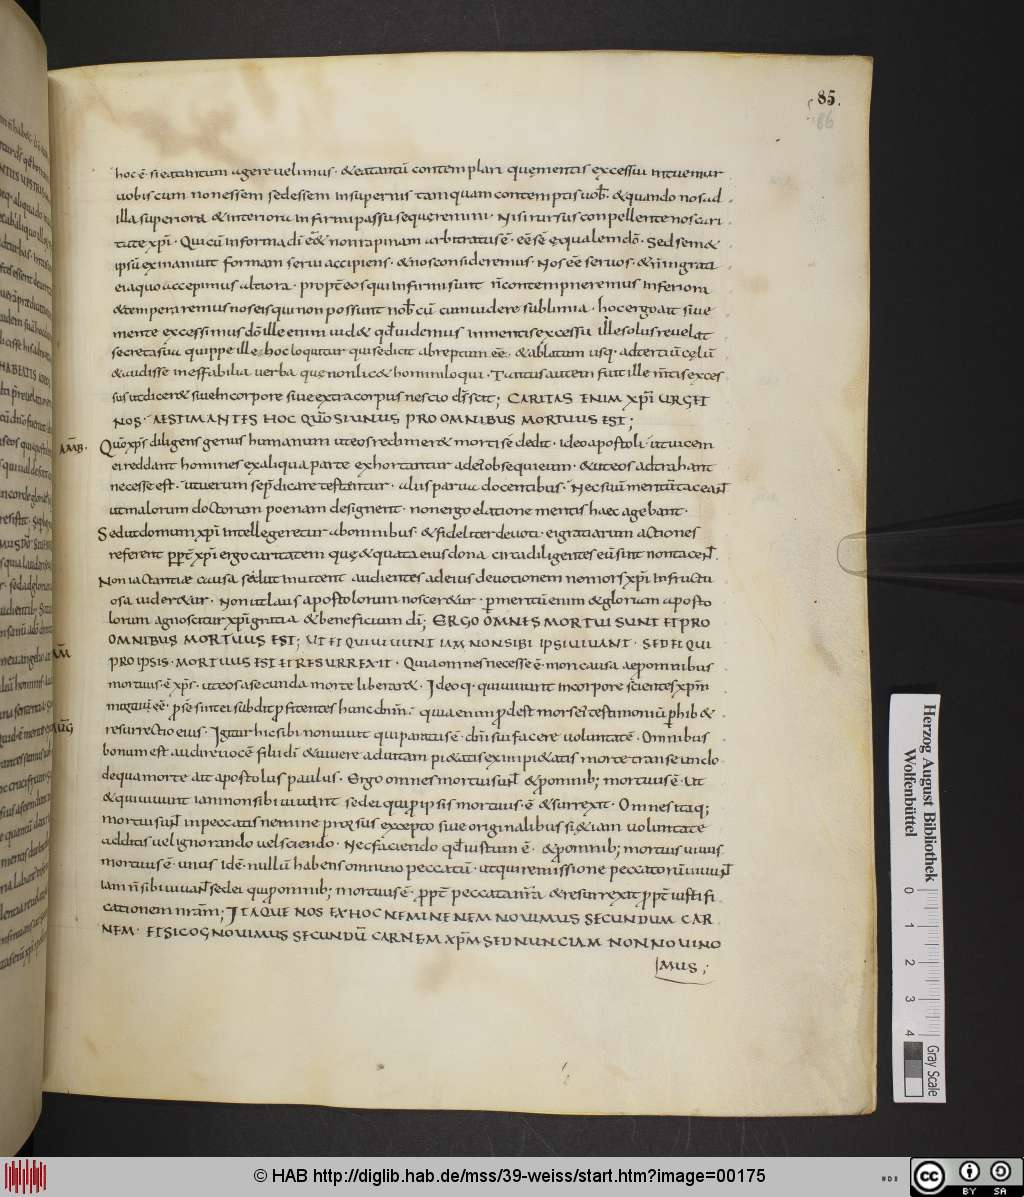 85.
86
hoc ē · si ea tantum agere velimus · & ea tantū contemplari quę mentis excessu intuemur
vobiscum non essem sed essem in supernis tamquam contemptis vob · & quando nos ad
illa superiora & interiora infirmi passu sequeremini · Nisi rursus conpellente nos cari
tate xp̄i · Qui cū in forma dī eēt non rapinam arbitratus ē · eē sē ęqualem dō · Sed sem&
ipsū exinanivit formam servi accipiens · & nos consideremus · Nos eē servos · & n̄ ingrati
ei a quo accepimus altiora · propt eos qui infirmi sunt n̄ contempneremus inferiora
& temperaremus nos eis qui non possunt nob cū cum videre sublimia · hoc ergo ait sive
mente excessimus dō ille enim vid& qd videmus in mentis excessu ille solus revelat
secreta sua quippe ille hoc loquitur qui se dicit abreptum eē · & ablatum usq · ad tertiū cęlū
& audisse ineffabilia verba quę non lic& homini loqui · Tantus autem fuit ille m̄tis exces
sus ut dicer& sive in corpore sive extra corpus nescio ds̄ scit; CARITAS ENIM XP̄I URGET
NOS · AESTIMANTES HOC QUŌ SI UNUS PRO OMNIBUS MORTUUS EST;
AMB.
Quō xp̄s diligens genus humanum ut eos redimer& morti sē dedit · ideo apostoli · ut vicem
ei reddant homines ex aliqua parte exhortantur ad ei obsequium · & ut eos adtrahant
necesse est · ut verum se p̄dicare testantur · alus parva docentibus · Nec suū meritū tacean̄
ut malorum doctorum poenam designent · non ergo elatione mentis haec agebant ·
Sed ut donum xp̄i intellegeretur ab omnibus · & fideliter devoti · ei gratiarum actiones
referent ppt xp̄i ergo caritatem quę & quanta eius dona circa diligentes eū sint non tacen̄ ·
Non iactantiae causa sed ut invitent audientes ad eius devotionem ne mors xp̄i infructu
osa vider&ur · Non ut laus apostolorum noscer&ur · p meritū enim & gloriam aposto
lorum agnoscitur xp̄i gratia & beneficium dī; ERGO OMNES MORTUI SUNT ET PRO
OMNIBUS MORTUUS EST; UT ET QUI VIVUNT IAM NON SIBI IPSI VIVANT · SED EI QUI
PRO IPSIS · MORTUUS EST ET RESURREXIT · Quia omnes necesse ē · non causa ae p omnibus
mortuus · ē xp̄s · ut eos a secunda morte liberar& · Ideoq · qui vivunt in corpore scientes xp̄m
eē · p se sint ei subditi p fitentes hunc dn̄m · quia enim p dest mors ei testimoniū phib&
resurrectio eius · Igitur hi sibi non vivunt qui parati s ē · dn̄i sui facere voluntatē · Omnibus
bonum est audire vocē filii dī & vivere ad vitam pi&atis ex impi&atis morte transeundo
de qua morte ait apostolus paulus · Ergo omnes mortui sun̄ & p omnib; mortuus ē · Ut
& qui vivunt iam non sibi vivant sed ei qui p ipsis mortuus · ē & surrexit · Omnes itaq;
mortui sun̄ in peccatis nemine prorsus excepto sive originalibus si & iam voluntate
additis vel ignorando vel sciendo · Nec faciendo qd iustum ē · & p omnib; mortuis vivus
mortuus ē · unus id ē · nullū habens omnino peccatū · ut qui remissione peccatorū vivun̄
iam n̄ sibi vivan̄ sed ei qui p omnib; mortuus ē · ppt peccata nr̄a & resurrexit ppt iustifi
cationem nr̄am; ITAQUE NOS EX HOC NEMINEM NOVIMUS SECUNDUM CAR
NEM · ET SI COGNOVIMUS SECUNDŪ CARNEM XP̄M SED NUNC IAM NON NOVI NO
MUS;
AM̄
AUG
Herzog August Bibliothek
Wolfenbüttel
0 1 2 3 4
Gray Scale
© HAB http://diglib.hab.de/mss/39-weiss/start.htm?image=00175
cc BY SA